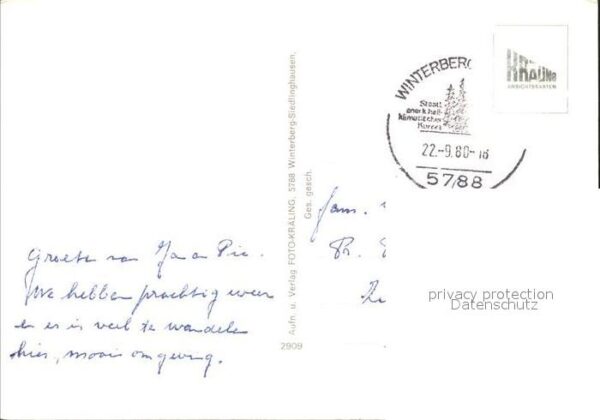 Groeten van Ja en Pie.
We hebben prachtig weer
en er is veel te wandelen
hier, mooie omgeving.
Aufn. u. Verlag FOTO-KRÄLING, 5788 Winterberg-Siedlinghausen,
Ges. gesch.
2909
WINTERBERG
Staatl
anerk heil-
klimatischer
Kurort
22.-9.80-18
5788
KRÄLING
ANSICHTSKARTEN
Fam.
privacy protection
Datenschutz